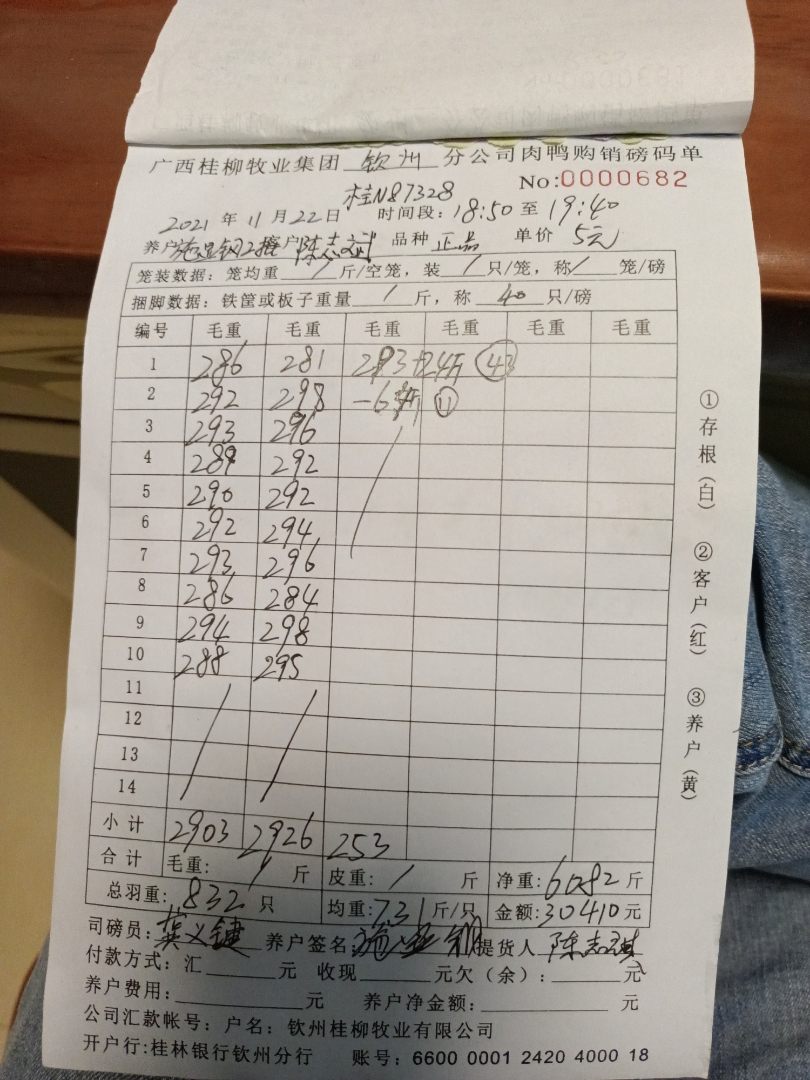 广西桂柳牧业集团 钦州 分公司肉鸭购销磅码单
No:0000682
桂N87328
2021 年 11 月 22 日 时间段: 18:50 至 19:40
养户 客户 陈志斌 品种 正品 单价 5元
笼装数据: 笼均重 / 斤/空笼, 装 / 只/笼, 称 / 笼/磅
捆脚数据: 铁筐或板子重量 / 斤, 称 40 只/磅
编号 毛重 毛重 毛重 毛重 毛重 毛重
1 286 281 ㊸
2 292 298 ⑪
3 293 296
4 289 292
5 290 292
6 292 294
7 293 296
8 286 284
9 294 298
10 288 295
11
12
13
14
小计 2903 2926 253
合计 毛重: / 斤 皮重: / 斤 净重: 6082 斤
总羽重: 832 只 均重: 7.31 斤/只 金额: 30410 元
司磅员: 龚义键 养户签名 提货人
付款方式: 汇 元 收现 元欠(余): 元
养户费用: 元 养户净金额: 元
公司汇款帐号: 户名: 钦州桂柳牧业有限公司
开户行:桂林银行钦州分行 账号: 6600 0001 2420 4000 18
①存根(白) ②客户(红) ③养户(黄)